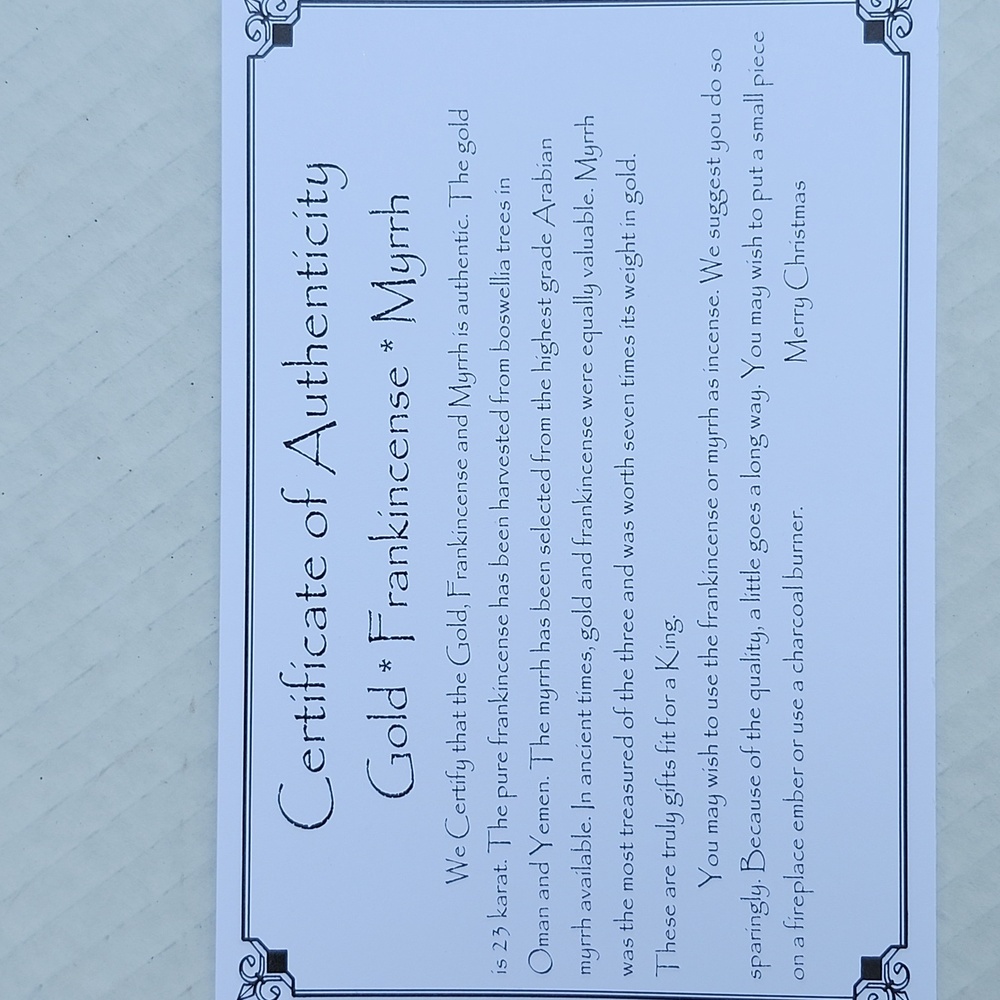 Certificate of Authenticity
Gold * Frankincense * Myrrh
We Certify that the Gold, Frankincense and Myrrh is authentic. The gold
is 23 karat. The pure frankincense has been harvested from boswellia trees in
Oman and Yemen. The myrrh has been selected from the highest grade Arabian
myrrh available. In ancient times, gold and frankincense were equally valuable. Myrrh
was the most treasured of the three and was worth seven times its weight in gold.
These are truly gifts fit for a King
You may wish to use the frankincense or myrrh as incense. We suggest you do so
sparingly. Because of the quality, a little goes a long way. You may wish to put a small piece
on a fireplace ember or use a charcoal burner. Merry Christmas